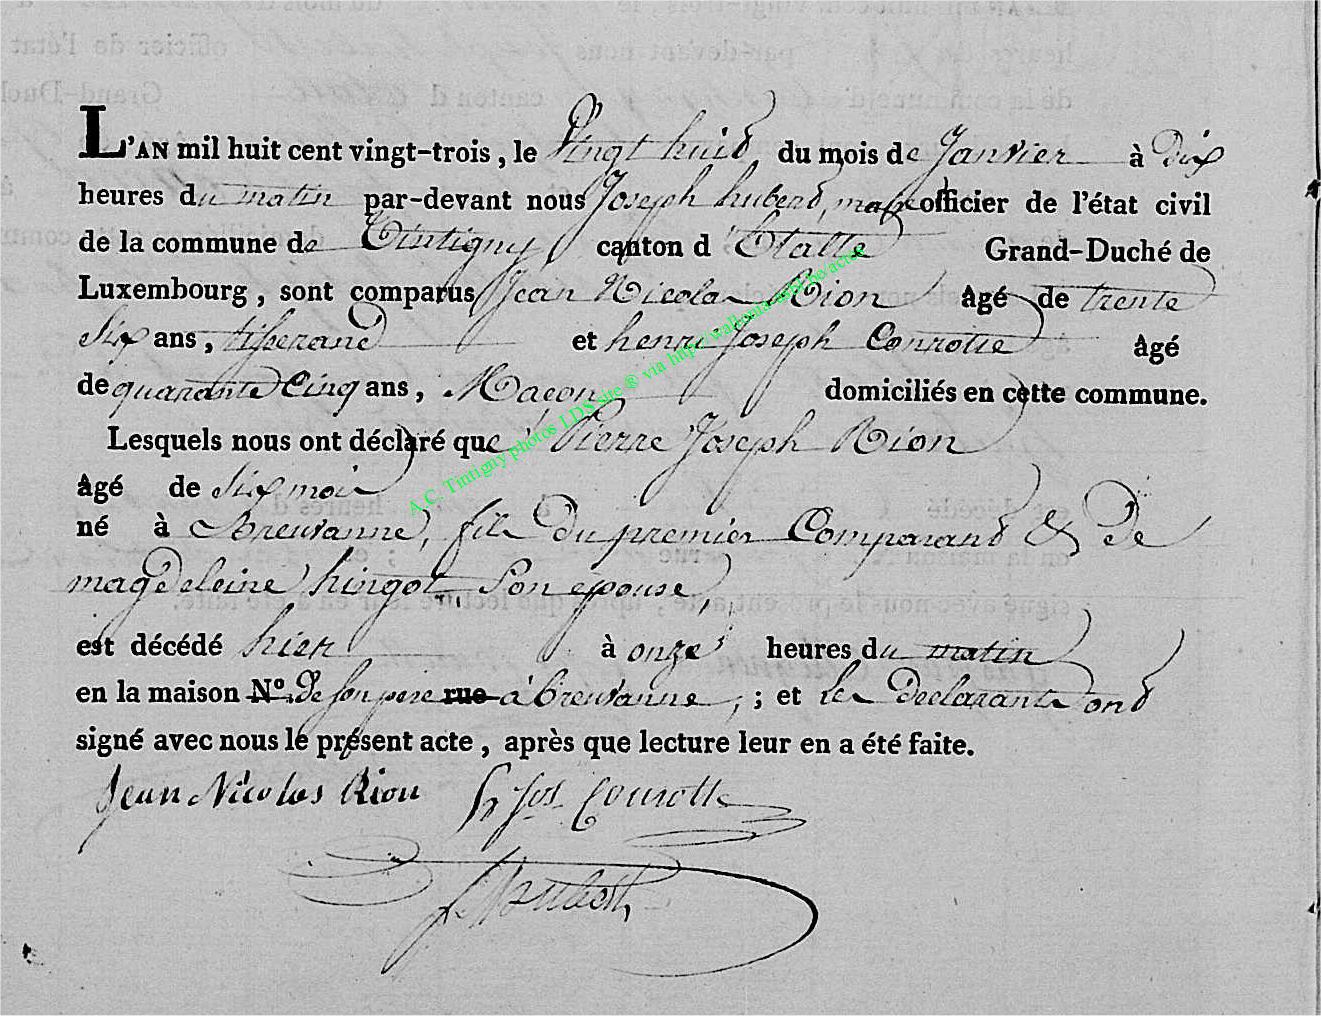 L'AN mil huit cent vingt-trois, le Vingt huid du mois de Janvier à dix
heures du matin par-devant nous Joseph huberd, maire officier de l'état civil
de la commune de Tintigny, canton d'Etalle Grand-Duché de
Luxembourg, sont comparus Jean Nicolas Rion âgé de trente
Six ans, tisserand et henri Joseph Conrotte âgé
de quarante Cinq ans, Macon domiciliés en cette commune.
Lesquels nous ont déclaré que Pierre Joseph Rion
âgé de Six moi
né à Breuvanne, fils du premier Comparand & De
magdeleine hingot Son epouse,
est décédé hier à onze heures du matin
en la maison N.º De son pere rue à breuvanne, ; et les Declarants ond
signé avec nous le présent acte, après que lecture leur en a été faite.
Jean Nicolas Rion h jos Conrotte
A.C. Tintigny photos LDS site ® via http://wallonia-asbl.be/actes